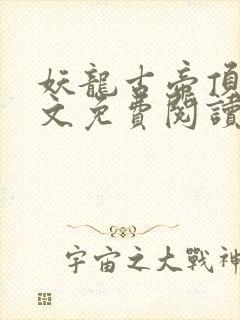 妖龍古帝頂
文免費閱讀
宇宙之大戰神